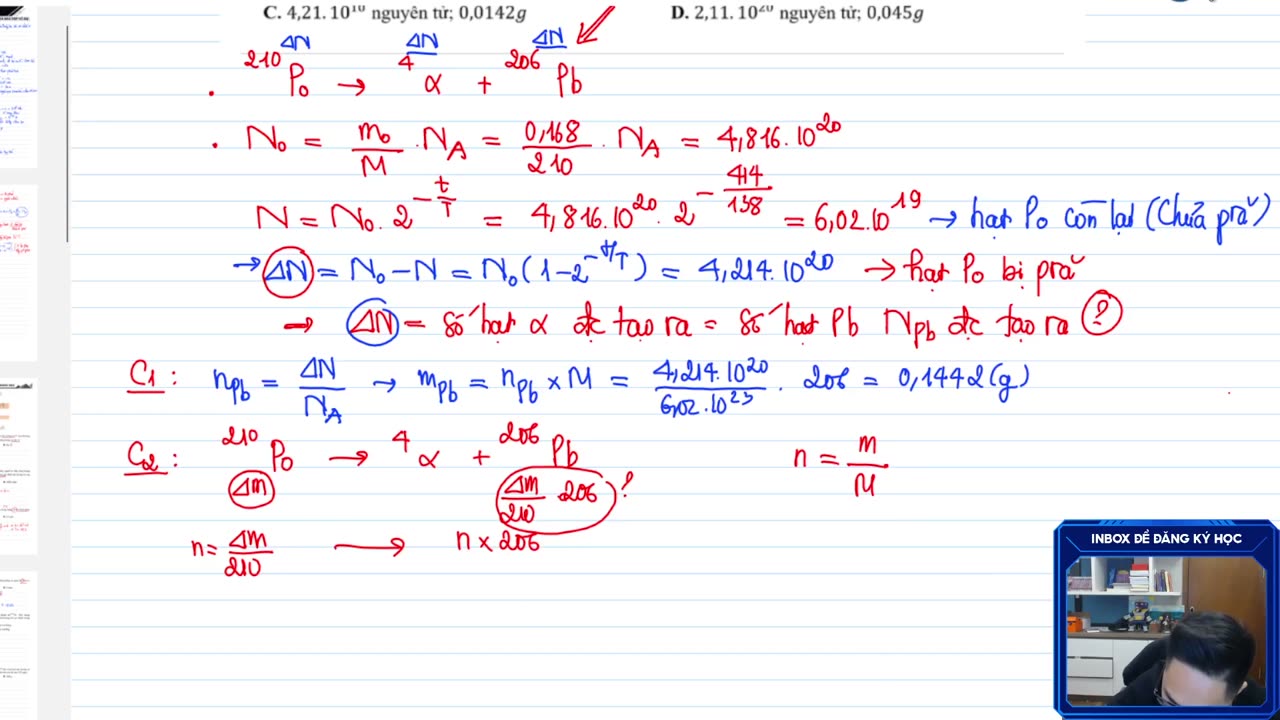 C. 4,21. 10¹⁰ nguyên tử; 0,0142g
D. 2,11. 10²⁰ nguyên tử; 0,045g
ΔN ΔN ΔN
. ²¹⁰Po → ⁴α + ²⁰⁶Pb
. N₀ = m₀/M . N_A = 0,168/210 . N_A = 4,816.10²⁰
N = N₀. 2^(-t/T) = 4,816.10²⁰. 2^(-414/138) = 6,02.10¹⁹ → hạt Po còn lại (Chưa prã)
→ ΔN = N₀ - N = N₀(1-2^(-t/T)) = 4,214.10²⁰ → hạt Po bị prã
→ ΔN = số hạt α đc tạo ra = số hạt Pb N_Pb đc tạo ra ?
C1 : n_Pb = ΔN/N_A → m_Pb = n_Pb × M = 4,214.10²⁰/6,02.10²³ . 206 = 0,1442 (g)
C2 : ²¹⁰Po → ⁴α + ²⁰⁶Pb
Δm Δm/210 .206 ?
n = m/M
n = Δm/210 → n × 206
INBOX ĐỂ ĐĂNG KÝ HỌC